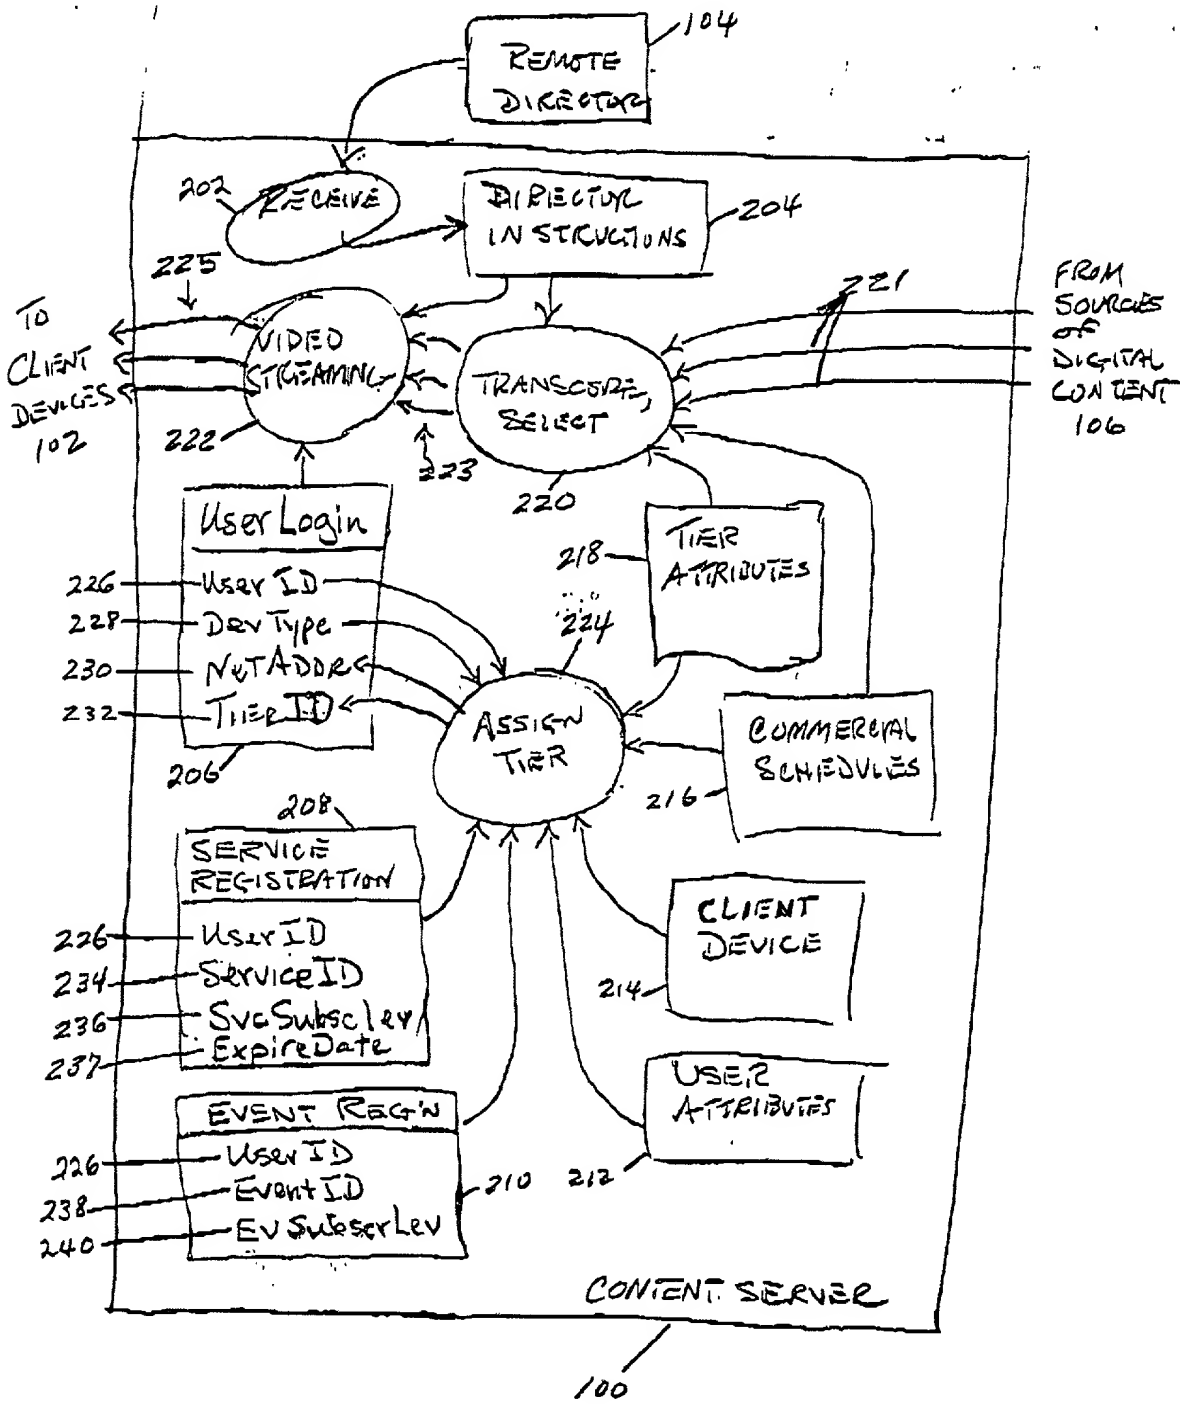 104
REMOTE
DIRECTOR
202
RECEIVE
DIRECTOR
INSTRUCTIONS
204
225
TO
CLIENT
DEVICES
102
VIDEO
STREAMING
222
223
TRANSCODE,
SELECT
220
221
FROM
SOURCES
OF
DIGITAL
CONTENT
106
User Login
226
User ID
228
Dev Type
230
NetAddr
232
Tier ID
206
218
TIER
ATTRIBUTES
224
ASSIGN
TIER
COMMERCIAL
SCHEDULES
216
208
SERVICE
REGISTRATION
226
User ID
234
Service ID
236
SvcSubscLev
237
ExpireDate
CLIENT
DEVICE
214
USER
ATTRIBUTES
212
EVENT REG'N
226
User ID
238
Event ID
240
EvSubscrLev
210
CONTENT SERVER
100